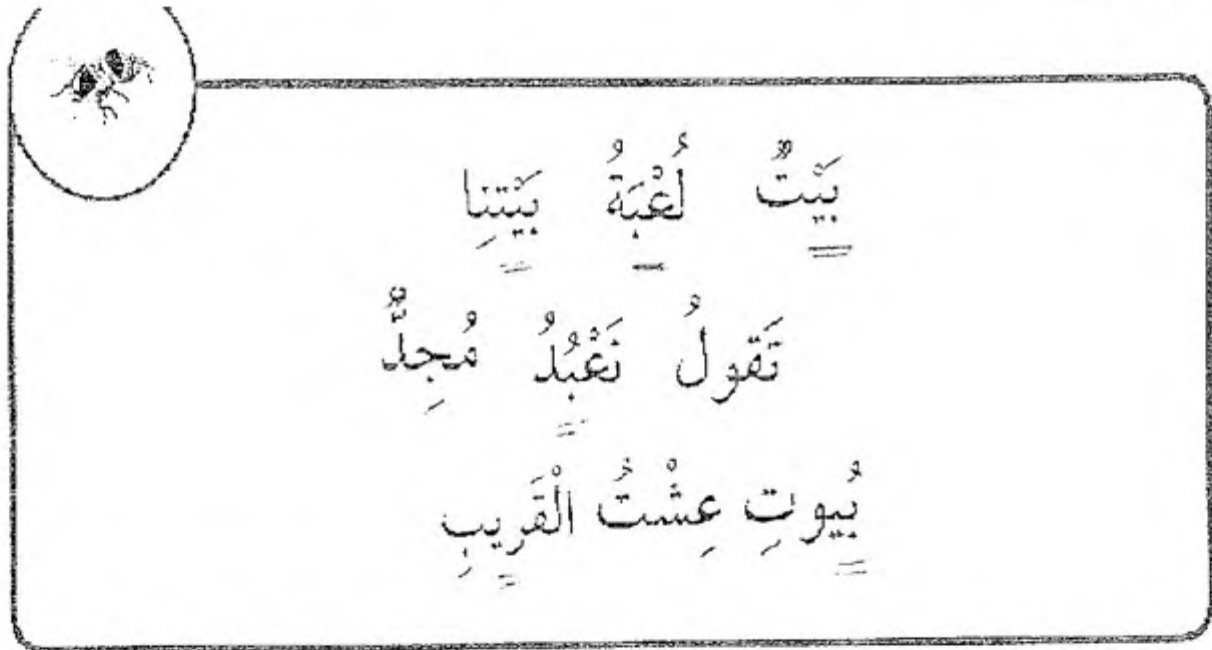 بَيْتٌ لُعْبَةُ بَيْتِنا
تَقولُ نَعْبُدُ مُجِدٌّ
بُيوتِ عِشْتُ الْقَريبِ